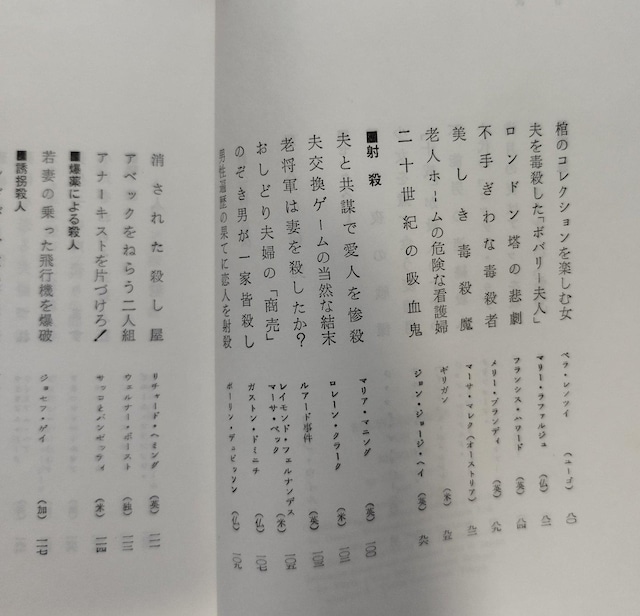 棺のコレクションを楽しむ女 ベラ・レンツイ （ユーゴ） 八〇
夫を毒殺した「ボバリー夫人」 マリー・ラファルジュ （仏） 八二
ロンドン塔の悲劇 フランシス・ハワード （英） 八四
不手ぎわな毒殺者 メリー・ブランディ （英） 八九
美しき毒殺魔 マーサ・マレク （オーストリア）
老人ホームの危険な看護婦 ギリガン （米）
二十世紀の吸血鬼 ジョン・ジョージ・ヘイ （英）
■射殺
夫と共謀で愛人を惨殺 マリア・マニング （英） 一〇〇
夫交換ゲームの当然な結末 ロレーン・クラーク （米） 一〇二
老将軍は妻を殺したか？ ルアード事件 （英）
おしどり夫婦の「商売」 レイモンド・フェルナンデス マーサ・ベック （米） 一〇五
のぞき男が一家皆殺し ガストン・ドミニチ （仏） 一〇七
男性遍歴の果てに恋人を射殺 ポーリン・デュビッソン （仏） 一〇九
消された殺し屋 リチャード・ヘミング （英） 一一一
アベックをねらう二人組 ウェルナー・ボースト （独） 一一二
アナーキストを片づけろ！ サッコとバンゼッティ （米） 一一四
■爆薬による殺人
若妻の乗った飛行機を爆破 ジョセフ・ゲイ （加） 一一七
■誘拐殺人